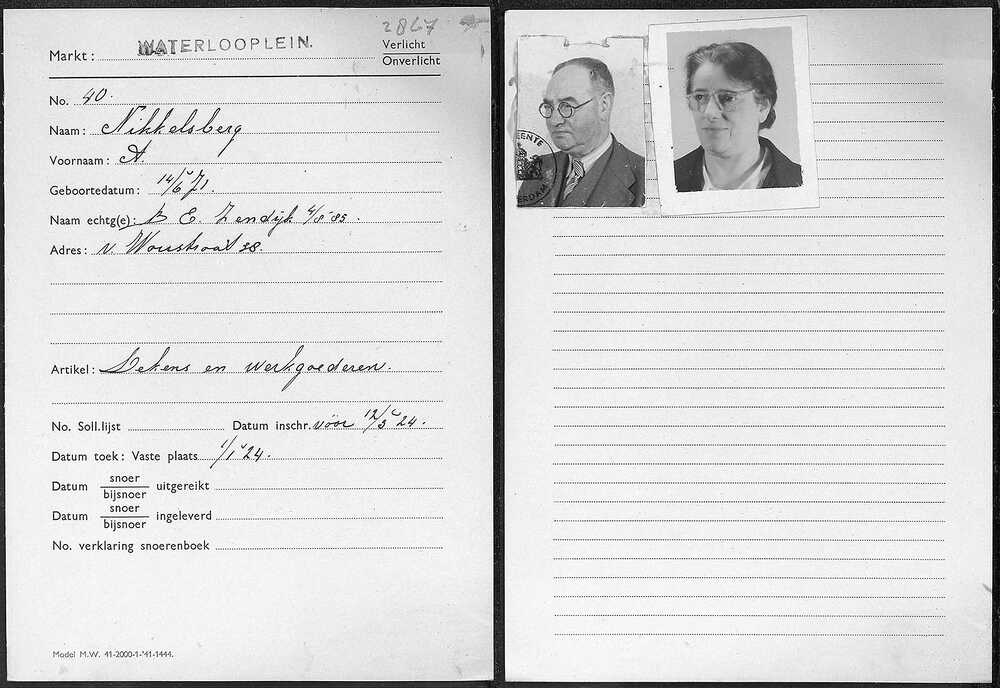 2867
Markt: WATERLOOPLEIN.
Verlicht
Onverlicht
No. 40.
Naam: Nikkelsberg
Voornaam: A.
Geboortedatum: 14/6 '71.
Naam echtg(e): E. Zendijk 4/8 '85.
Adres: v. Woustraat 38.
Artikel: Dekens en werkgoederen.
No. Soll.lijst Datum inschr. vóór 12/3 '24.
Datum toek: Vaste plaats 1/1 '24.
Datum snoer/bijsnoer uitgereikt
Datum snoer/bijsnoer ingeleverd
No. verklaring snoerenboek
Model M.W. 41-2000-1-'41-1444.
EENTE
ERDAM